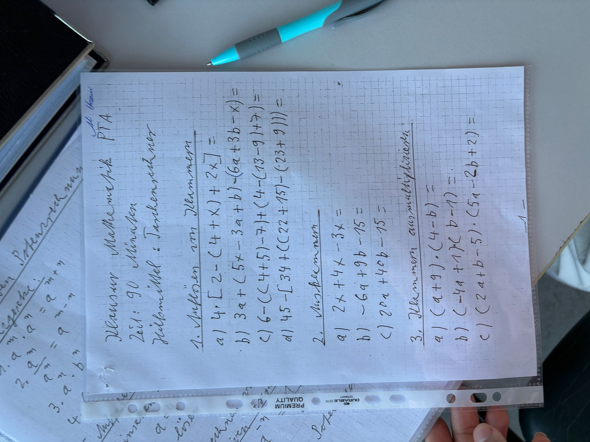 Klausur Mathematik PTA
Zeit: 90 Minuten
Hilfsmittel: Taschenrechner
1. Auflösen von Klammern
a) 4+[2-(4+x)+2x]=
b) 3a+(5x-3a+b)-(6a+3b-x)=
c) 6-((4+5)-7)+(4-(13-9)+7)=
d) 45-[34+((22+15)-(23+9))]=
2. Ausklammern
a) 2x+4x-3x=
b) -6a+9b-15=
c) 20a+40b-15=
3. Klammern ausmultiplizieren:
a) (a+9)·(4-b)=
b) (-4a+1)(b-1)=
c) (2a+b-5)·(5a-2b+2)=
-1-
PREMIUM
QUALITY
DURABLE
Potenzrechnung